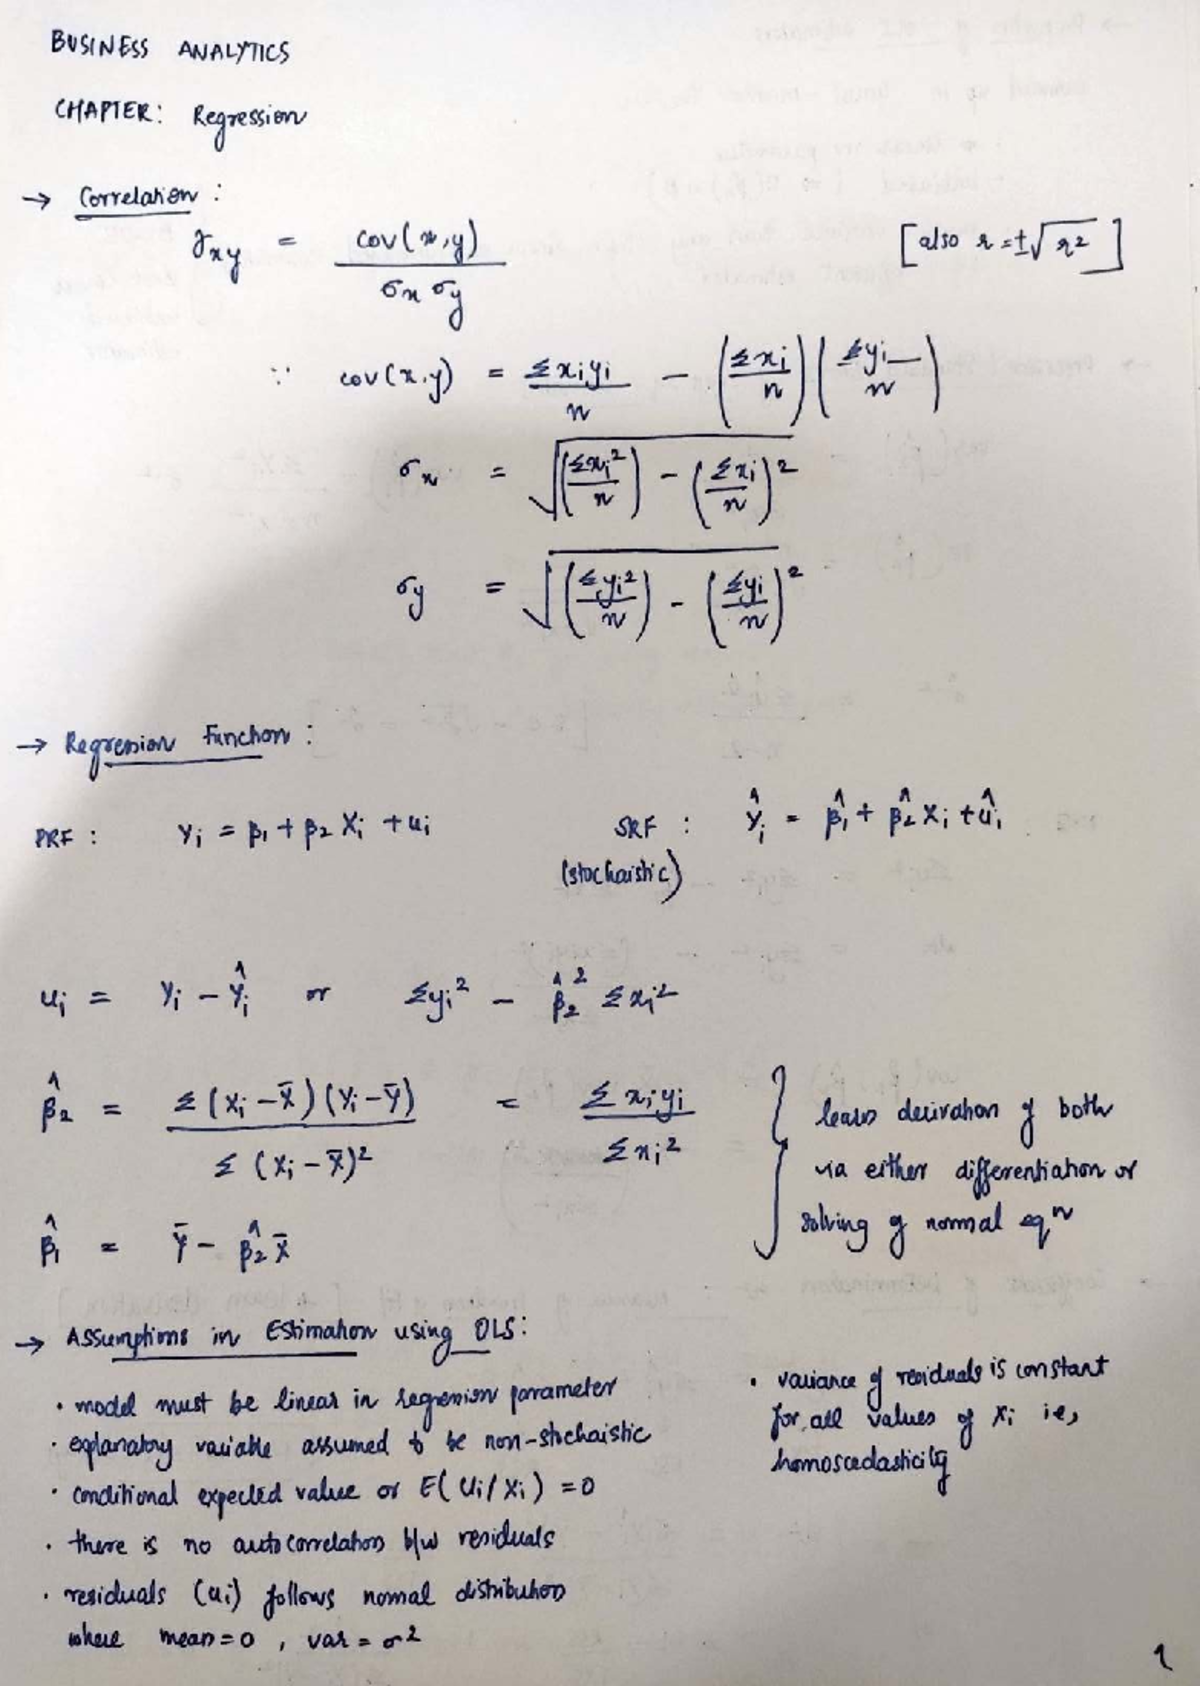 BUSINESS ANALYTICS
CHAPTER: Regression
→ Correlation :
r_xy = cov(x,y) / σx σy [also r = ±√r²]
∵ cov(x,y) = Σxiyi/n − (Σxi/n)(Σyi/n)
σx = √((Σxi²/n) − (Σxi/n)²)
σy = √((Σyi²/n) − (Σyi/n)²)
→ Regression Function :
PRF : Yi = β1 + β2 Xi + ui SRF : Ŷi = β̂1 + β̂2 Xi + ûi
(stochaistic)
ui = Yi − Ŷi or Σyi² − β̂2² Σxi²
β̂2 = Σ(Xi − X̄)(Yi − Ȳ) / Σ(Xi − X̄)² = Σxiyi / Σxi²
β̂1 = Ȳ − β̂2 X̄
learn derivation of both
via either differentiation or
solving of normal eqⁿ
→ Assumptions in Estimation using OLS:
· model must be linear in regression parameter
· explanatory variable assumed to be non-stochaistic
· conditional expected value or E(Ui/Xi) = 0
· there is no autocorrelation b/w residuals
· residuals (ui) follows normal distribution
where mean = 0 , var = σ²
· variance of residuals is constant
for all values of Xi ie,
homoscedasticity
1